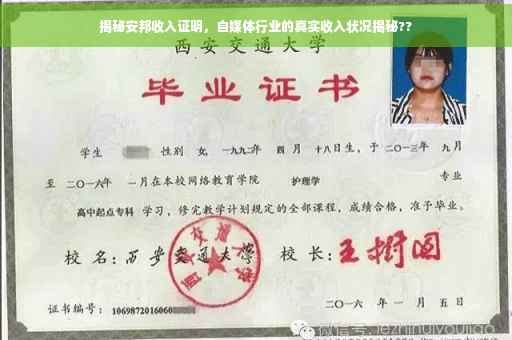 揭秘安邦收入证明，自媒体行业的真实收入状况揭秘??
西安交通大学
毕业证书
学生 性别 女, 一九九二年 四月 十八日生，于 二〇一三年 九月
至 二〇一六年 一月在本校网络教育学院 护理学 专业
高中起点专科 学习，修完教学计划规定的全部课程，成绩合格，准予毕业。
校 名：西安交通大学 校 长：王树国
证书编号：1069872016060
二〇一六 年 一 月 五 日
微信号: jezhihuiyoujiao